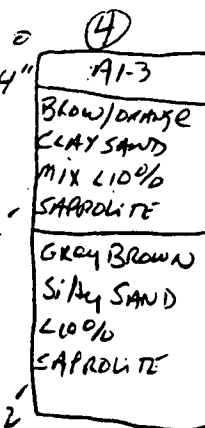 4
0
A1-3
4"
BROW/ORANGE
CLAY SAND
MIX <10%
SAPROLITE
GREY BROWN
Silty SAND
<10%
SAPROLITE
2'